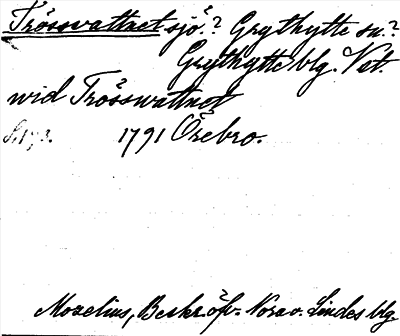 Trösswattnet sjö.? Grythytte sn.?
Grythytte blg. Vet.
wid Trösswattnet
S. 173. 1791 Örebro.
Mozelius, Beskr. öfv. Nora o. Lindes blg